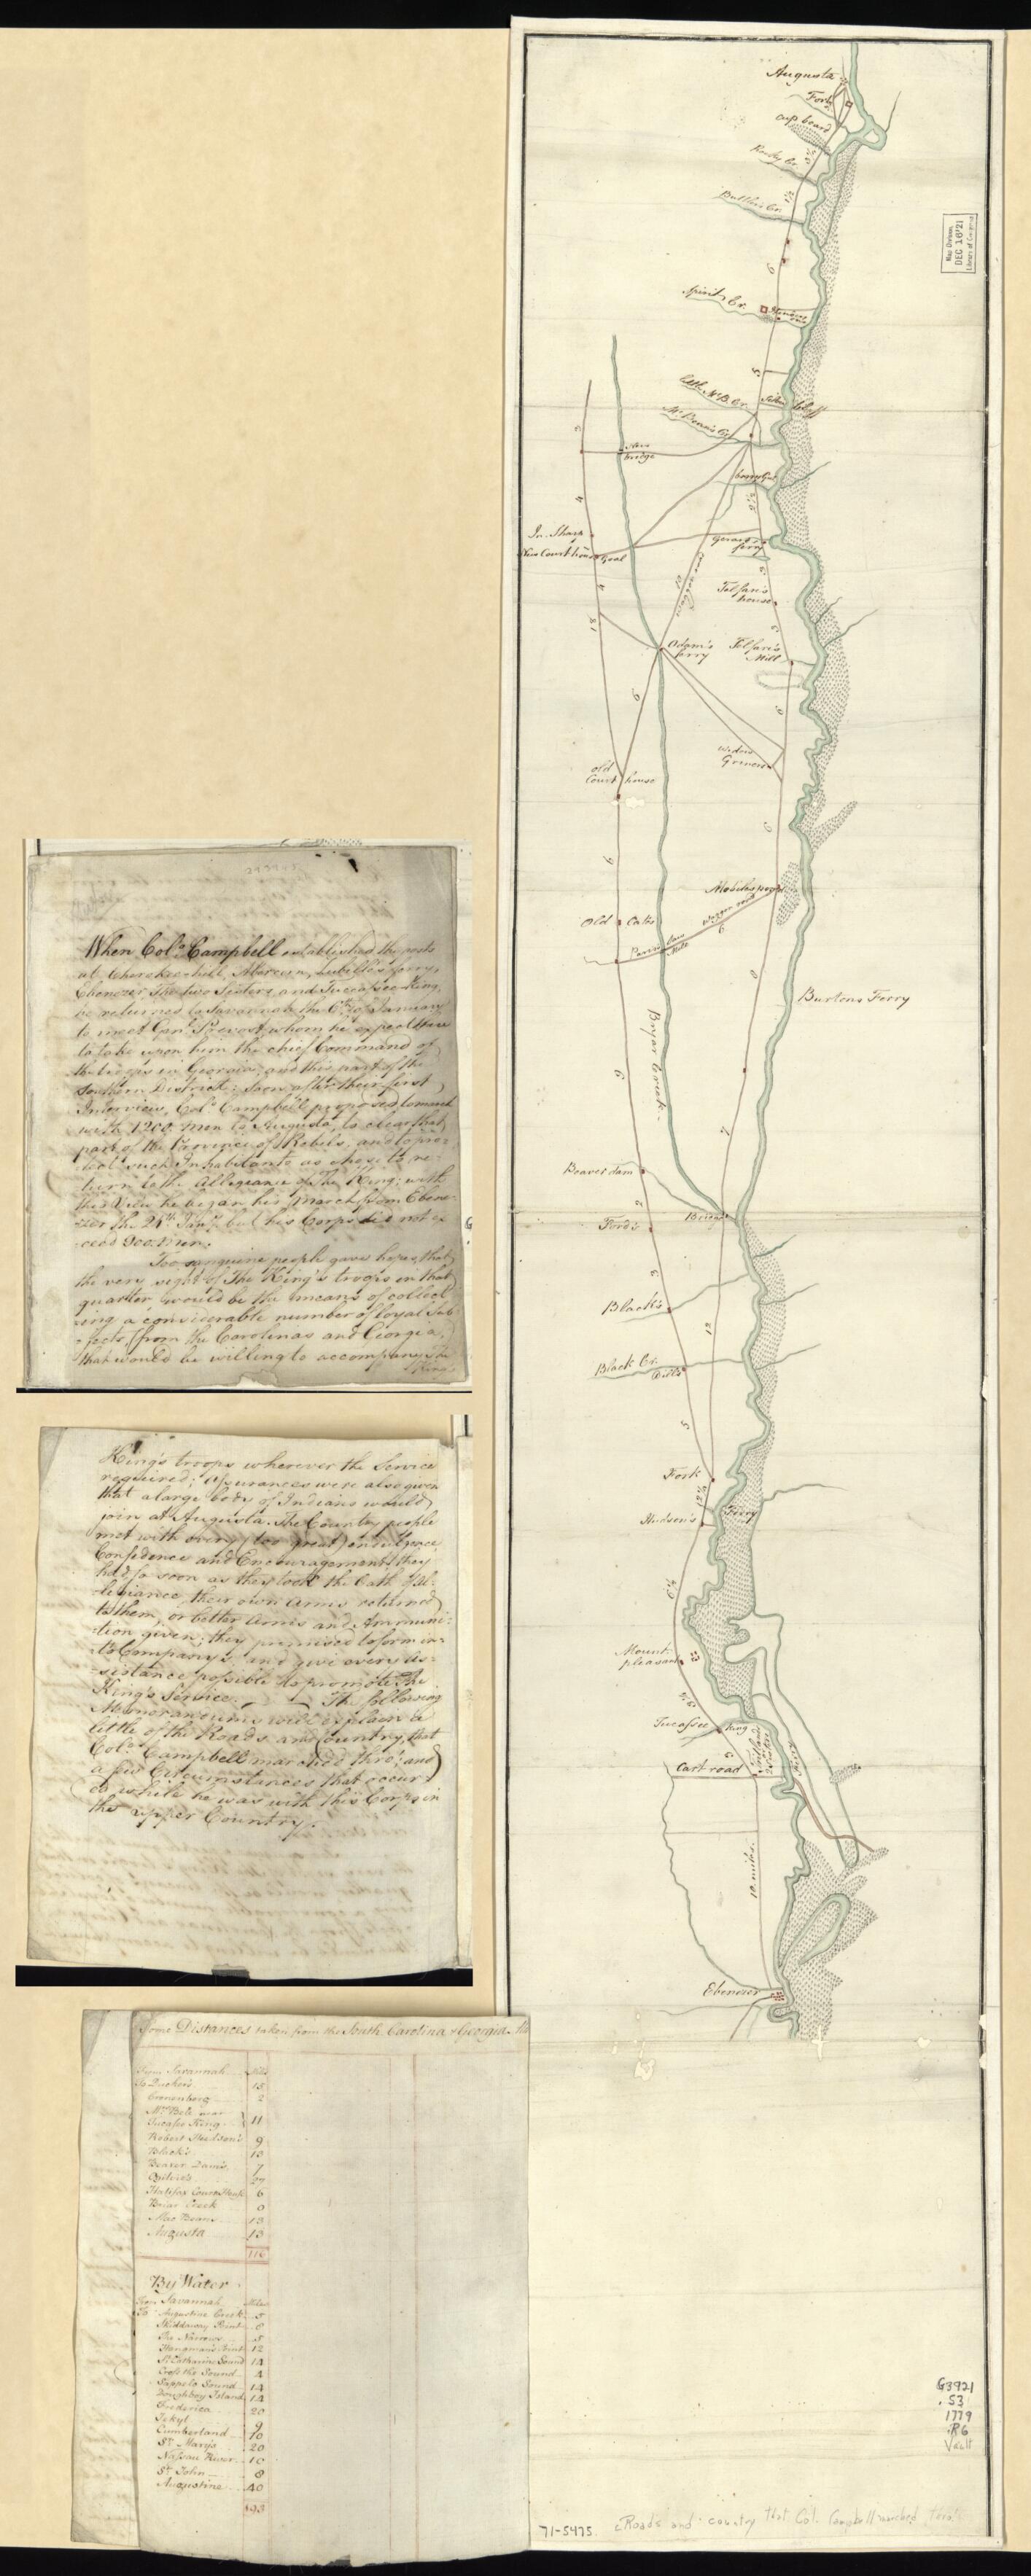 Augusta
Fort
Cupboard
Rocky Cr.
Butlers Cr.
6
Spirit Cr.
5
little McB. Cr.
McBean's Cr.
New
bridge
4
In. Sharp
New Court house
Goal
ferry
Telfair's
house
4
18
10
Adam's
ferry
Telfair's
Mill
9
Widow
Greiners
old
Court house
9
9
Mobiles pond
Old Caths
Waggon road
6
Mill
Burtons Ferry
Bryar Creek.
9
7
Beaver dam
2
Ford's
3
Black's
12
Black Cr.
5
Fork
12½
Hudson's
Ferry
Mount
pleasant
Tucassee King
Cart road
10 miles.
Ebenezer
Map Division
DEC 16 '21
Library of Congress
When Col.o Campbell established the posts
at Cherokee-hill, Abercorn, Zubli's ferry,
Ebenezer, The two Sisters, and Tuccassee-King,
he returned to Savannah the 6th of January
to meet Gen.l Prevost, whom he expected there
to take upon him the chief Command of
the troops in Georgia, and this part of the
Southern District: Soon after their first
Interview, Col.o Campbell proposed to march
with 1200 men to Augusta, to clear that
part of the Province of Rebels, and to pro=
tect such Inhabitants as chose to re=
turn to the Allegiance of The King; with
this View he began his March from Ebene=
zer the 24th Jan.y but his Corps did not ex
ceed 900 Men.
Too sanguine people gave hopes, that
the very sight of The King's troops in that
quarter would be the means of collect
ing a considerable number of loyal Sub
=jects, (from the Carolinas and Georgia,)
that would be willing to accompany The
King's
King's troops wherever the Service
required; assurances were also given
that a large body of Indians would
join at Augusta. The Country people
met with every (too great) indulgence,
Confidence and Encouragement; they
had so soon as they took the Oath of al=
legiance, their own Arms returned
to them, or better Arms and Ammuni=
tion given; they promised to form in=
to Companys, and give every as=
sistance possible to promote The
King's Service. The following
Memorandums will explain a
little of the Roads and Country that
Col.o Campbell marched thro', and
a few Circumstances that occur=
ed while he was with this Corps in
the upper Country.
Some Distances taken from the South Carolina & Georgia
From Savannah Miles
To Zucher's 18
Cronenberg 2
Mrs Bell near
Tucasse King 11
Robert Hudson's 9
Black's 13
Beaver Dam's 7
Ogilvie's 27
Halifax Court House 6
Briar Creek
Mac Beans 13
Augusta 13
By Water
From Savannah Miles
To Augustine Creek 5
Skiddaway Point 6
The Narrows 5
Hangman's Point 12
St Catharine Sound 14
Cross the Sound 4
Sappelo Sound 14
Doughboy Island 14
Frederica 20
Jekyl 9
Cumberland 10
St Marys 20
Nassau River 10
St John 8
Augustine 40
193
G3921
.S3
1779
.R6
Vault
71-5475. Roads and country that Col. Campbell marched thro'.